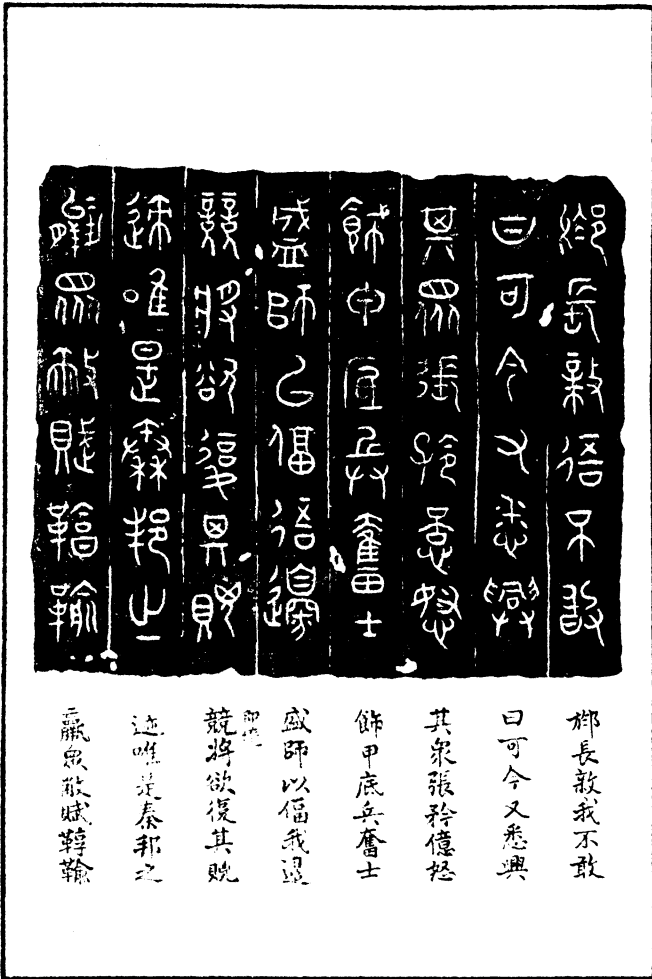 長敹俉不敢
曰可今又悉興
其眾張矜意怒
飾甲底兵奮士
盛師以偪俉邊
競將欲復其
迹唯是秦邦之
羸眾敝賦
長敹我不敢
曰可今又悉興
其衆張矜億怒
飾甲底兵奮士
盛師以偪我邊
競即境將欲復其貺
迹唯是秦邦之
羸衆敝賦